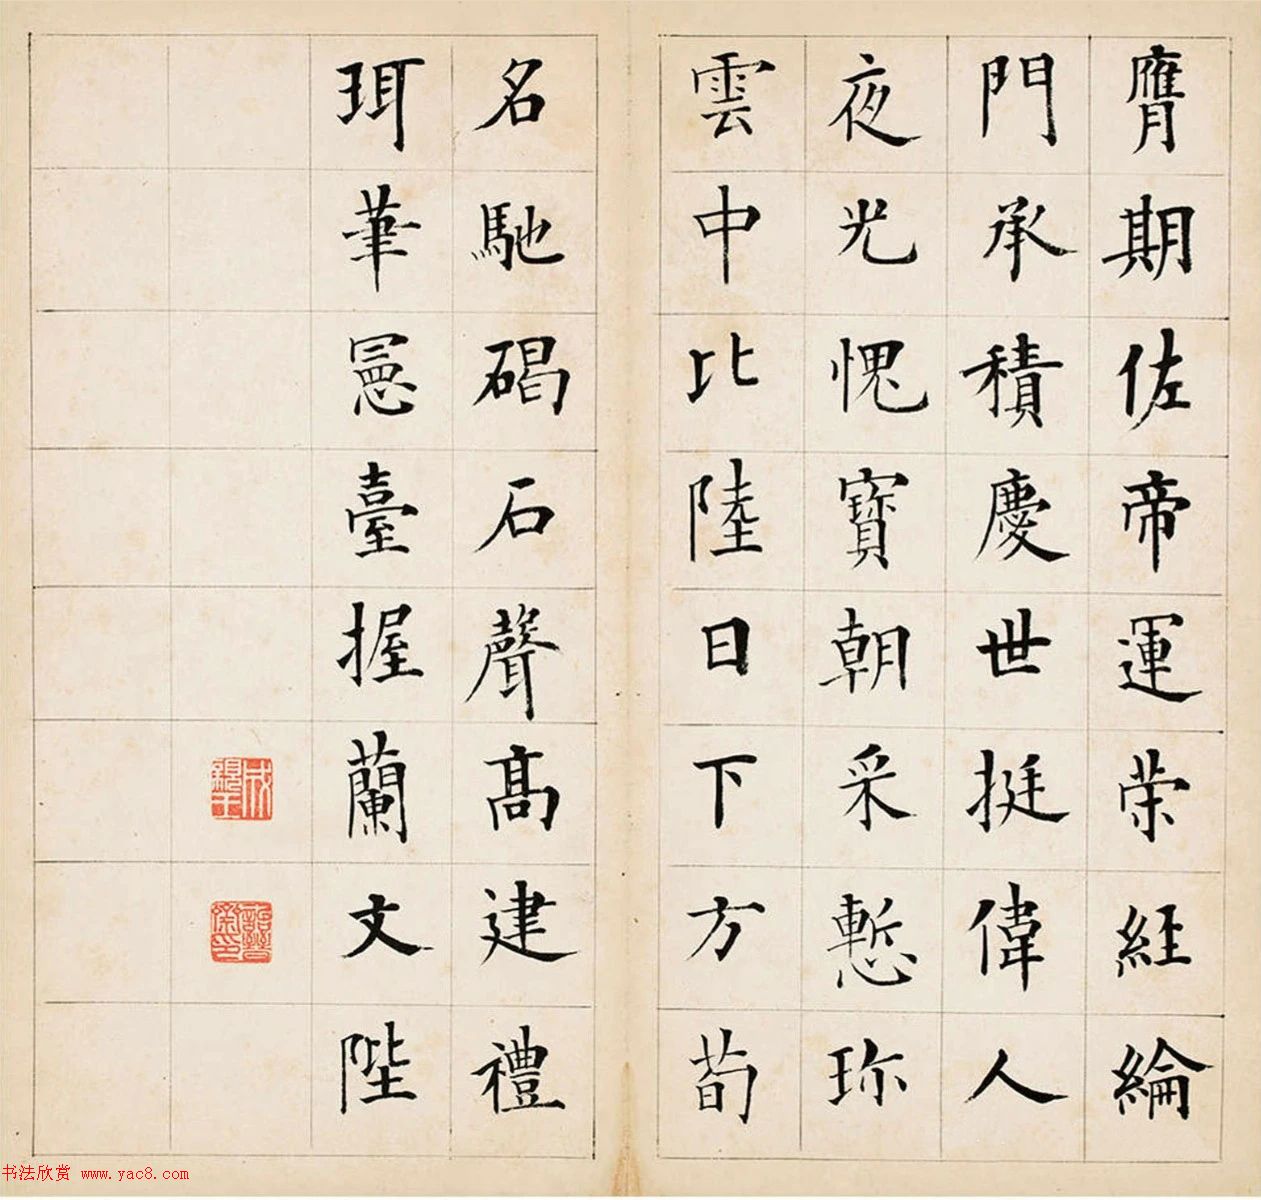 膺期佐帝運荣經綸
門承積慶世挺偉人
夜光愧寶朝采慙珎
雲中比陸日下方荀
名馳碣石聲髙建禮
珥茟憲臺握蘭文陛
成親王
詒晉齋印
书法欣赏 www.yac8.com